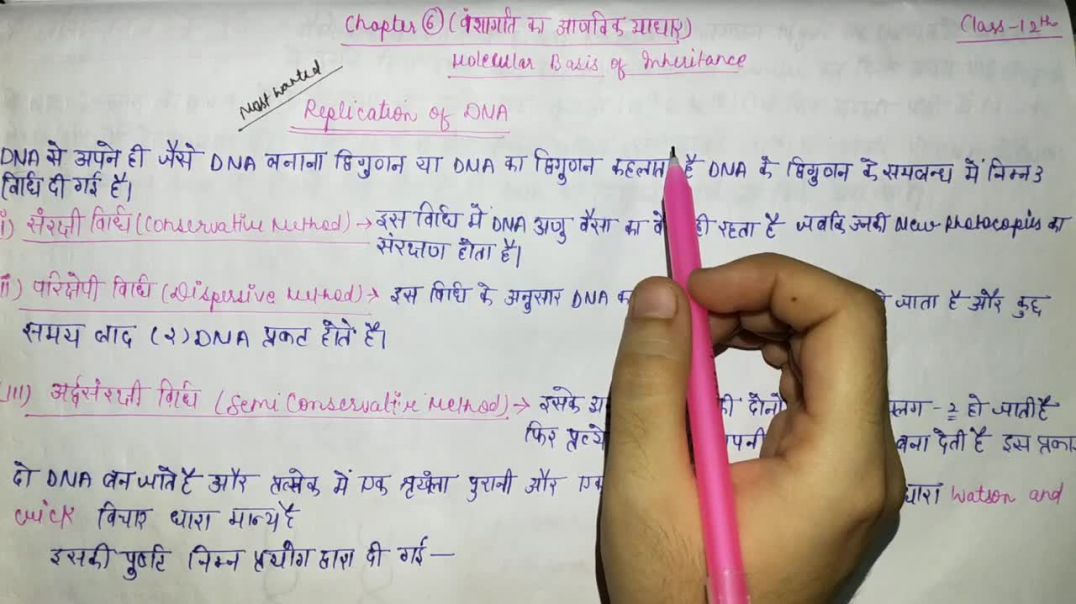 Chapter ⑥ (वंशागति का आणविक आधार)
Class-12th
Molecular Basis of Inheritance
Most wanted
Replication of DNA
DNA से अपने ही जैसे DNA बनाना द्विगुणन या DNA का द्विगुणन कहलाता है DNA के द्विगुणन के सम्बन्ध में निम्न 3
विधि दी गई है।
i) संरक्षी विधि (Conservative Method) → इस विधि में DNA अणु वैसा का ही रहता है जबकि उनकी New Photocopies का
संरक्षण होता है।
ii) परिक्षेपी विधि (Dispersive Method) → इस विधि के अनुसार DNA जाता है और कुछ
समय बाद (२) DNA प्रकट होते है।
III) अर्द्धसंरक्षी विधि (Semi Conservative Method) → इसके की दोनों हो जाती है
फिर बना देती है इस प्रकार
दो DNA बन जाते है और प्रत्येक में एक श्रृंखला पुरानी और Watson and
Crick विचार धारा मान्य है
इसकी पुष्टि निम्न प्रयोग द्वारा दी गई —